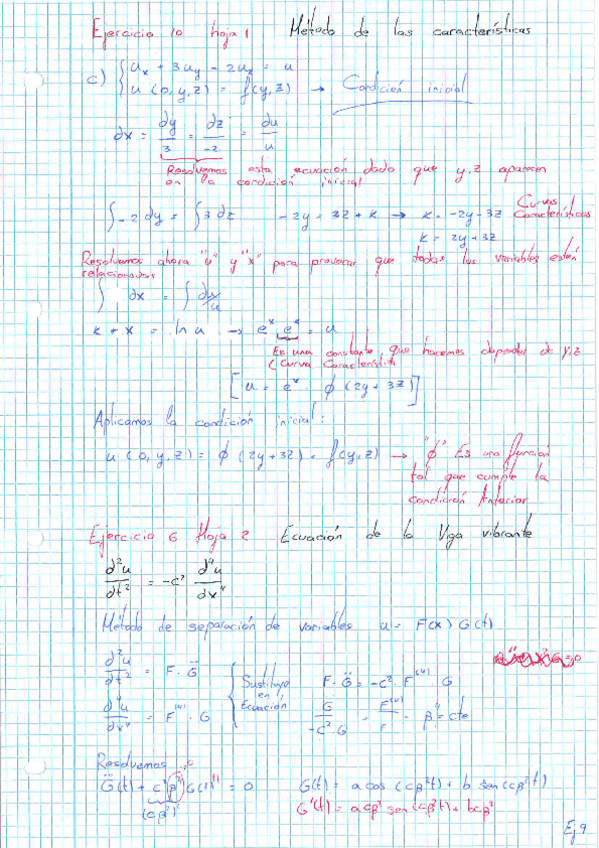 Ejercicio 10 hoja 1 Método de las características
c) { u_x + 3u_y - 2u_z = u
u(0,y,z) = f(y,z) → Condición inicial
dx = dy/3 = dz/-2 = du/u
Resolvemos esta ecuación dado que y,z aparecen
en la condición inicial
∫-2dy = ∫3dz -2y = 3z + k → k = -2y-3z Curvas Características
k = 2y+3z
Resolvemos ahora "u" y "x" para provocar que todas las variables estén
relacionadas
∫dx = ∫du/u
k + x = ln u → e^x e^k = u
Es una constante que hacemos depender de y,z
(Curva Característica
[u = e^x · φ(2y+3z)]
Aplicamos la condición inicial:
u(0,y,z) = φ(2y+3z) = f(y,z) → "φ" Es una función
tal que cumple la
condición Anterior
Ejercicio 6 Hoja 2 Ecuación de la Viga vibrante
d²u/dt² = -c² d⁴u/dx⁴
Método de separación de variables u = F(x) G(t)
d²u/dt² = F·G̈ { Sustituyo en Ecuación F·G̈ = -c²·F^(4)·G
d⁴u/dx⁴ = F^(4)·G G̈/-c²·G = F^(4)/F = β⁴ = cte
Resolvemos
G̈(t) + c²β⁴G(t) = 0 G(t) = a cos(cβ²t) + b sen(cβ²t)
(cβ²)² G'(t) = a cβ² sen(cβ²t) + bcβ²
Ej 9